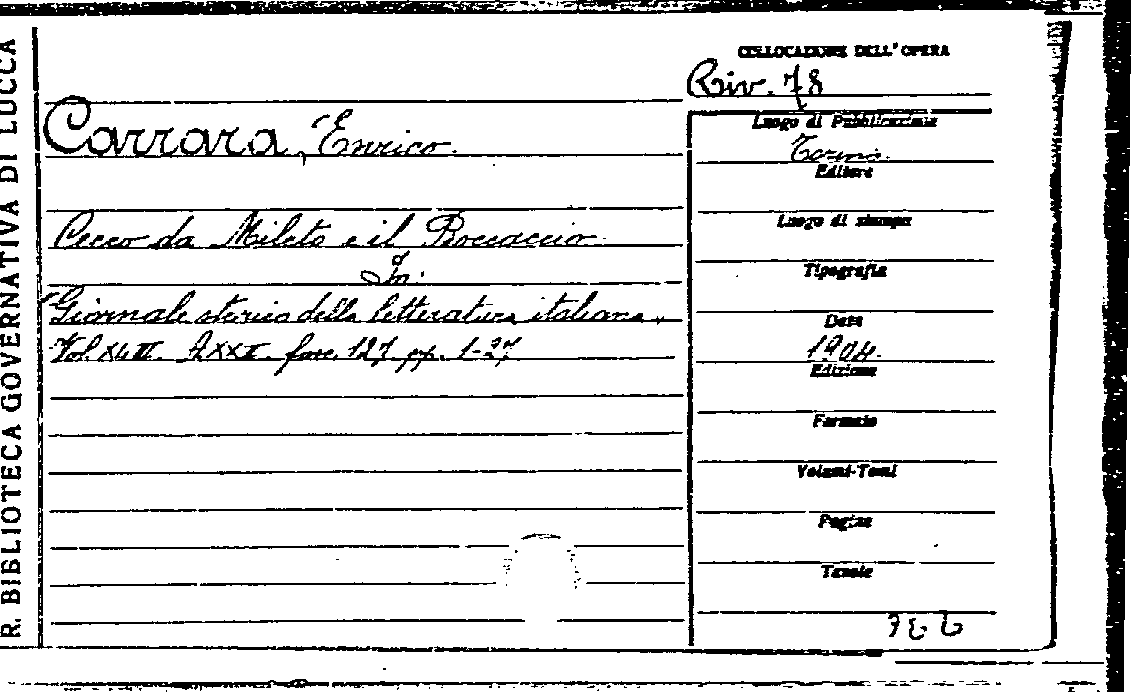 R. BIBLIOTECA GOVERNATIVA DI LUCCA
COLLOCAZIONE DELL'OPERA
Riv. 78
Carrara, Enrico.
Luogo di Pubblicazione
Torino.
Editore
Cecco da Mileto e il Boccaccio.
Luogo di stampa
In:
Tipografia
Giornale storico della letteratura italiana,
Data
Vol. XLIII. fasc. 127 pp. 1-27
1904.
Edizione
Formato
Volumi-Tomi
Pagine
Tavole